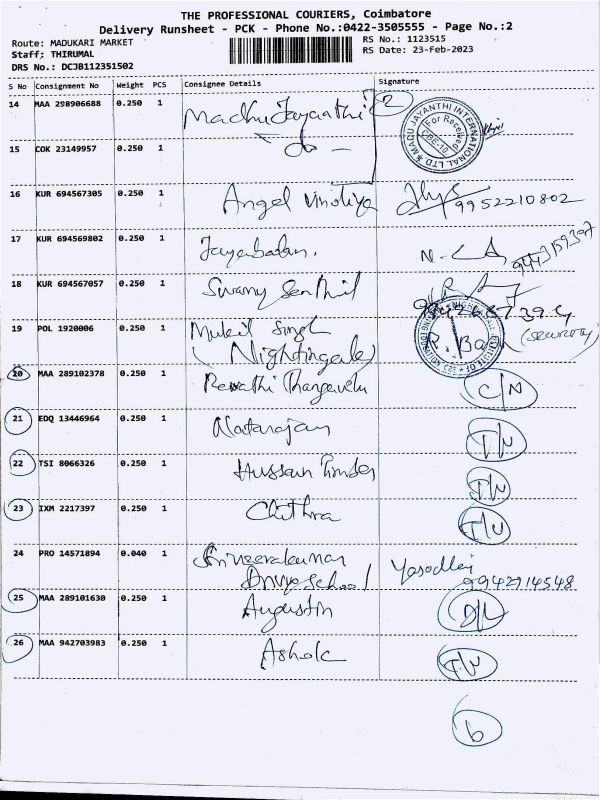 THE PROFESSIONAL COURIERS, Coimbatore
Delivery Runsheet - PCK - Phone No.:0422-3505555 - Page No.:2
Route: MADUKARI MARKET
RS No.: 1123515
Staff; THIRUMAL
RS Date: 23-Feb-2023
DRS No.: DCJB112351502
S No Consignment No Weight PCS Consignee Details Signature
14 MAA 298906688 0.250 1 Madhu Jayanthi 2
MADU JAYANTHI INTERNATIONAL LTD
For Received
CBE-10
15 COK 23149957 0.250 1 - do -
16 KUR 694567305 0.250 1 Angel Vinoliya 9952210802
17 KUR 694569802 0.250 1 Jayabalan.
18 KUR 694567057 0.250 1 Swamy Senthil
19 POL 1920006 0.250 1 Mukil Singh
(Nightingale) (security)
20 MAA 289102378 0.250 1 Revathi Thangavelu C/N
21 EDQ 13446964 0.250 1 Natarajan I/N
22 TSI 8066326 0.250 1 Hussain Timber I/N
23 IXM 2217397 0.250 1 Chithra I/N
24 PRO 14571894 0.040 1 Sriveerakumar Yasodhai
Divya School 9942714548
25 MAA 289101630 0.250 1 Augustin D/L
26 MAA 942703983 0.250 1 Ashok I/N
6